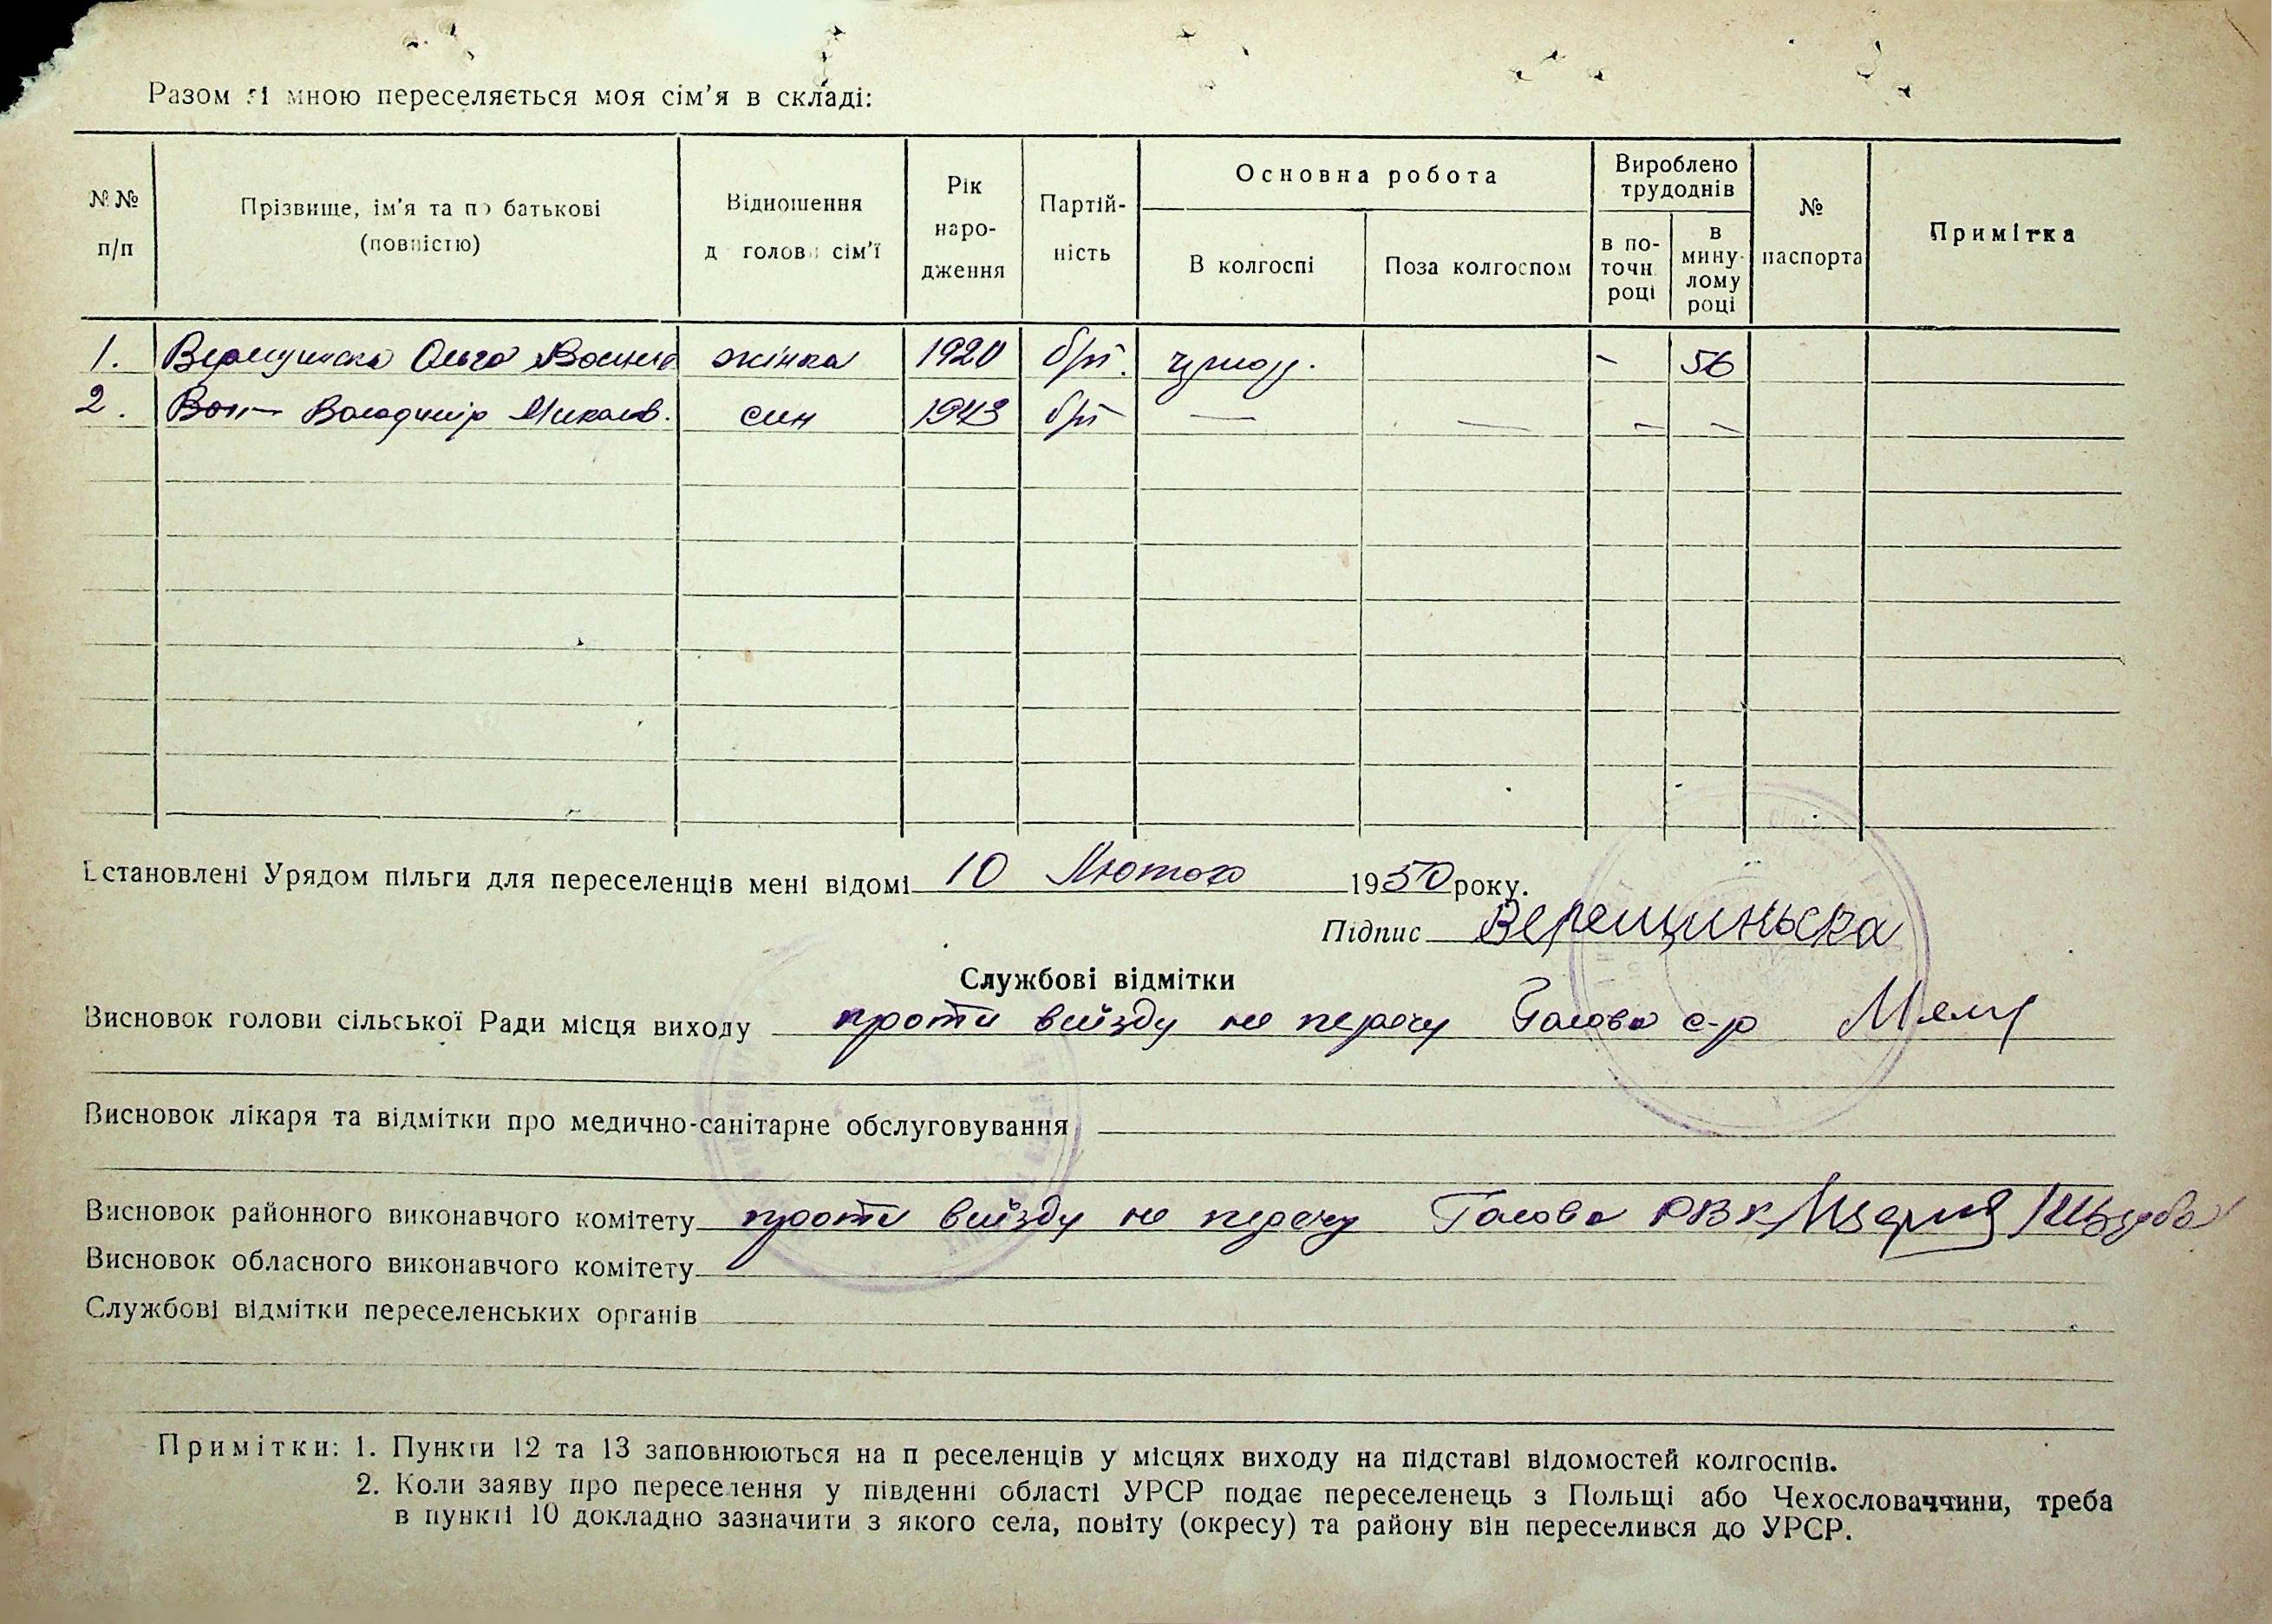 Разом зі мною переселяється моя сім'я в складі:
№ №
п/п
Прізвище, ім'я та по батькові
(повністю)
Відношення
д голов сім'ї
Рік
наро-
дження
Партій-
ність
Основна робота
В колгоспі
Поза колгоспом
Вироблено
трудоднів
в по-
точн.
році
в
мину-
лому
році
№
паспорта
Примітка
1. Ольга жінка 1920 б/п. - 56
2. Володимир Миколов. син 1943 б/п — — — —
становлені Урядом пільги для переселенців мені відомі 10 Лютого 1950 року.
Підпис Верещиньска
Службові відмітки
Висновок голови сільської Ради місця виходу проти виїзду не перечу Голова с-р
Висновок лікаря та відмітки про медично-санітарне обслуговування
Висновок районного виконавчого комітету проти виїзду не перечу Голова РВК
Висновок обласного виконавчого комітету
Службові відмітки переселенських органів
Примітки: 1. Пункти 12 та 13 заповнюються на п реселенців у місцях виходу на підставі відомостей колгоспів.
2. Коли заяву про переселення у південні області УРСР подає переселенець з Польщі або Чехословаччини, треба
в пункті 10 докладно зазначити з якого села, повіту (окресу) та району він переселився до УРСР.